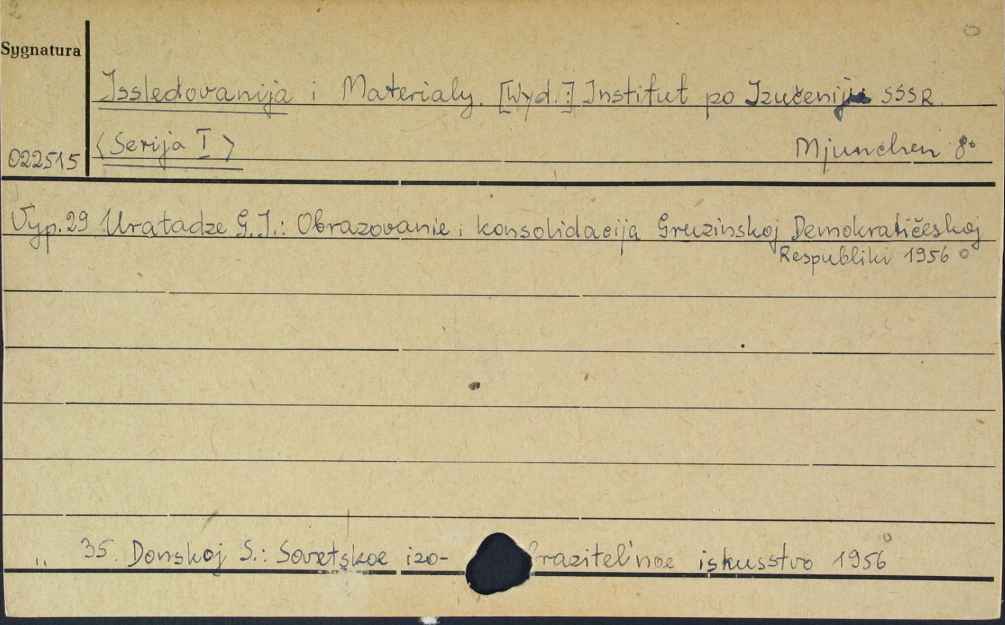 Sygnatura
Issledovanija i Materialy. [Wyd.:] Institut po Izučeniju SSSR.
022515 <Serija I> Mjunchen 8°
Vyp. 29 Uratadze G.I.: Obrazovanie i konsolidacija Gruzinskoj Demokratičeskoj
Respubliki 1956
„ 35. Donskoj S.: Sovetskoe izo- brazitel'noe iskusstvo 1956